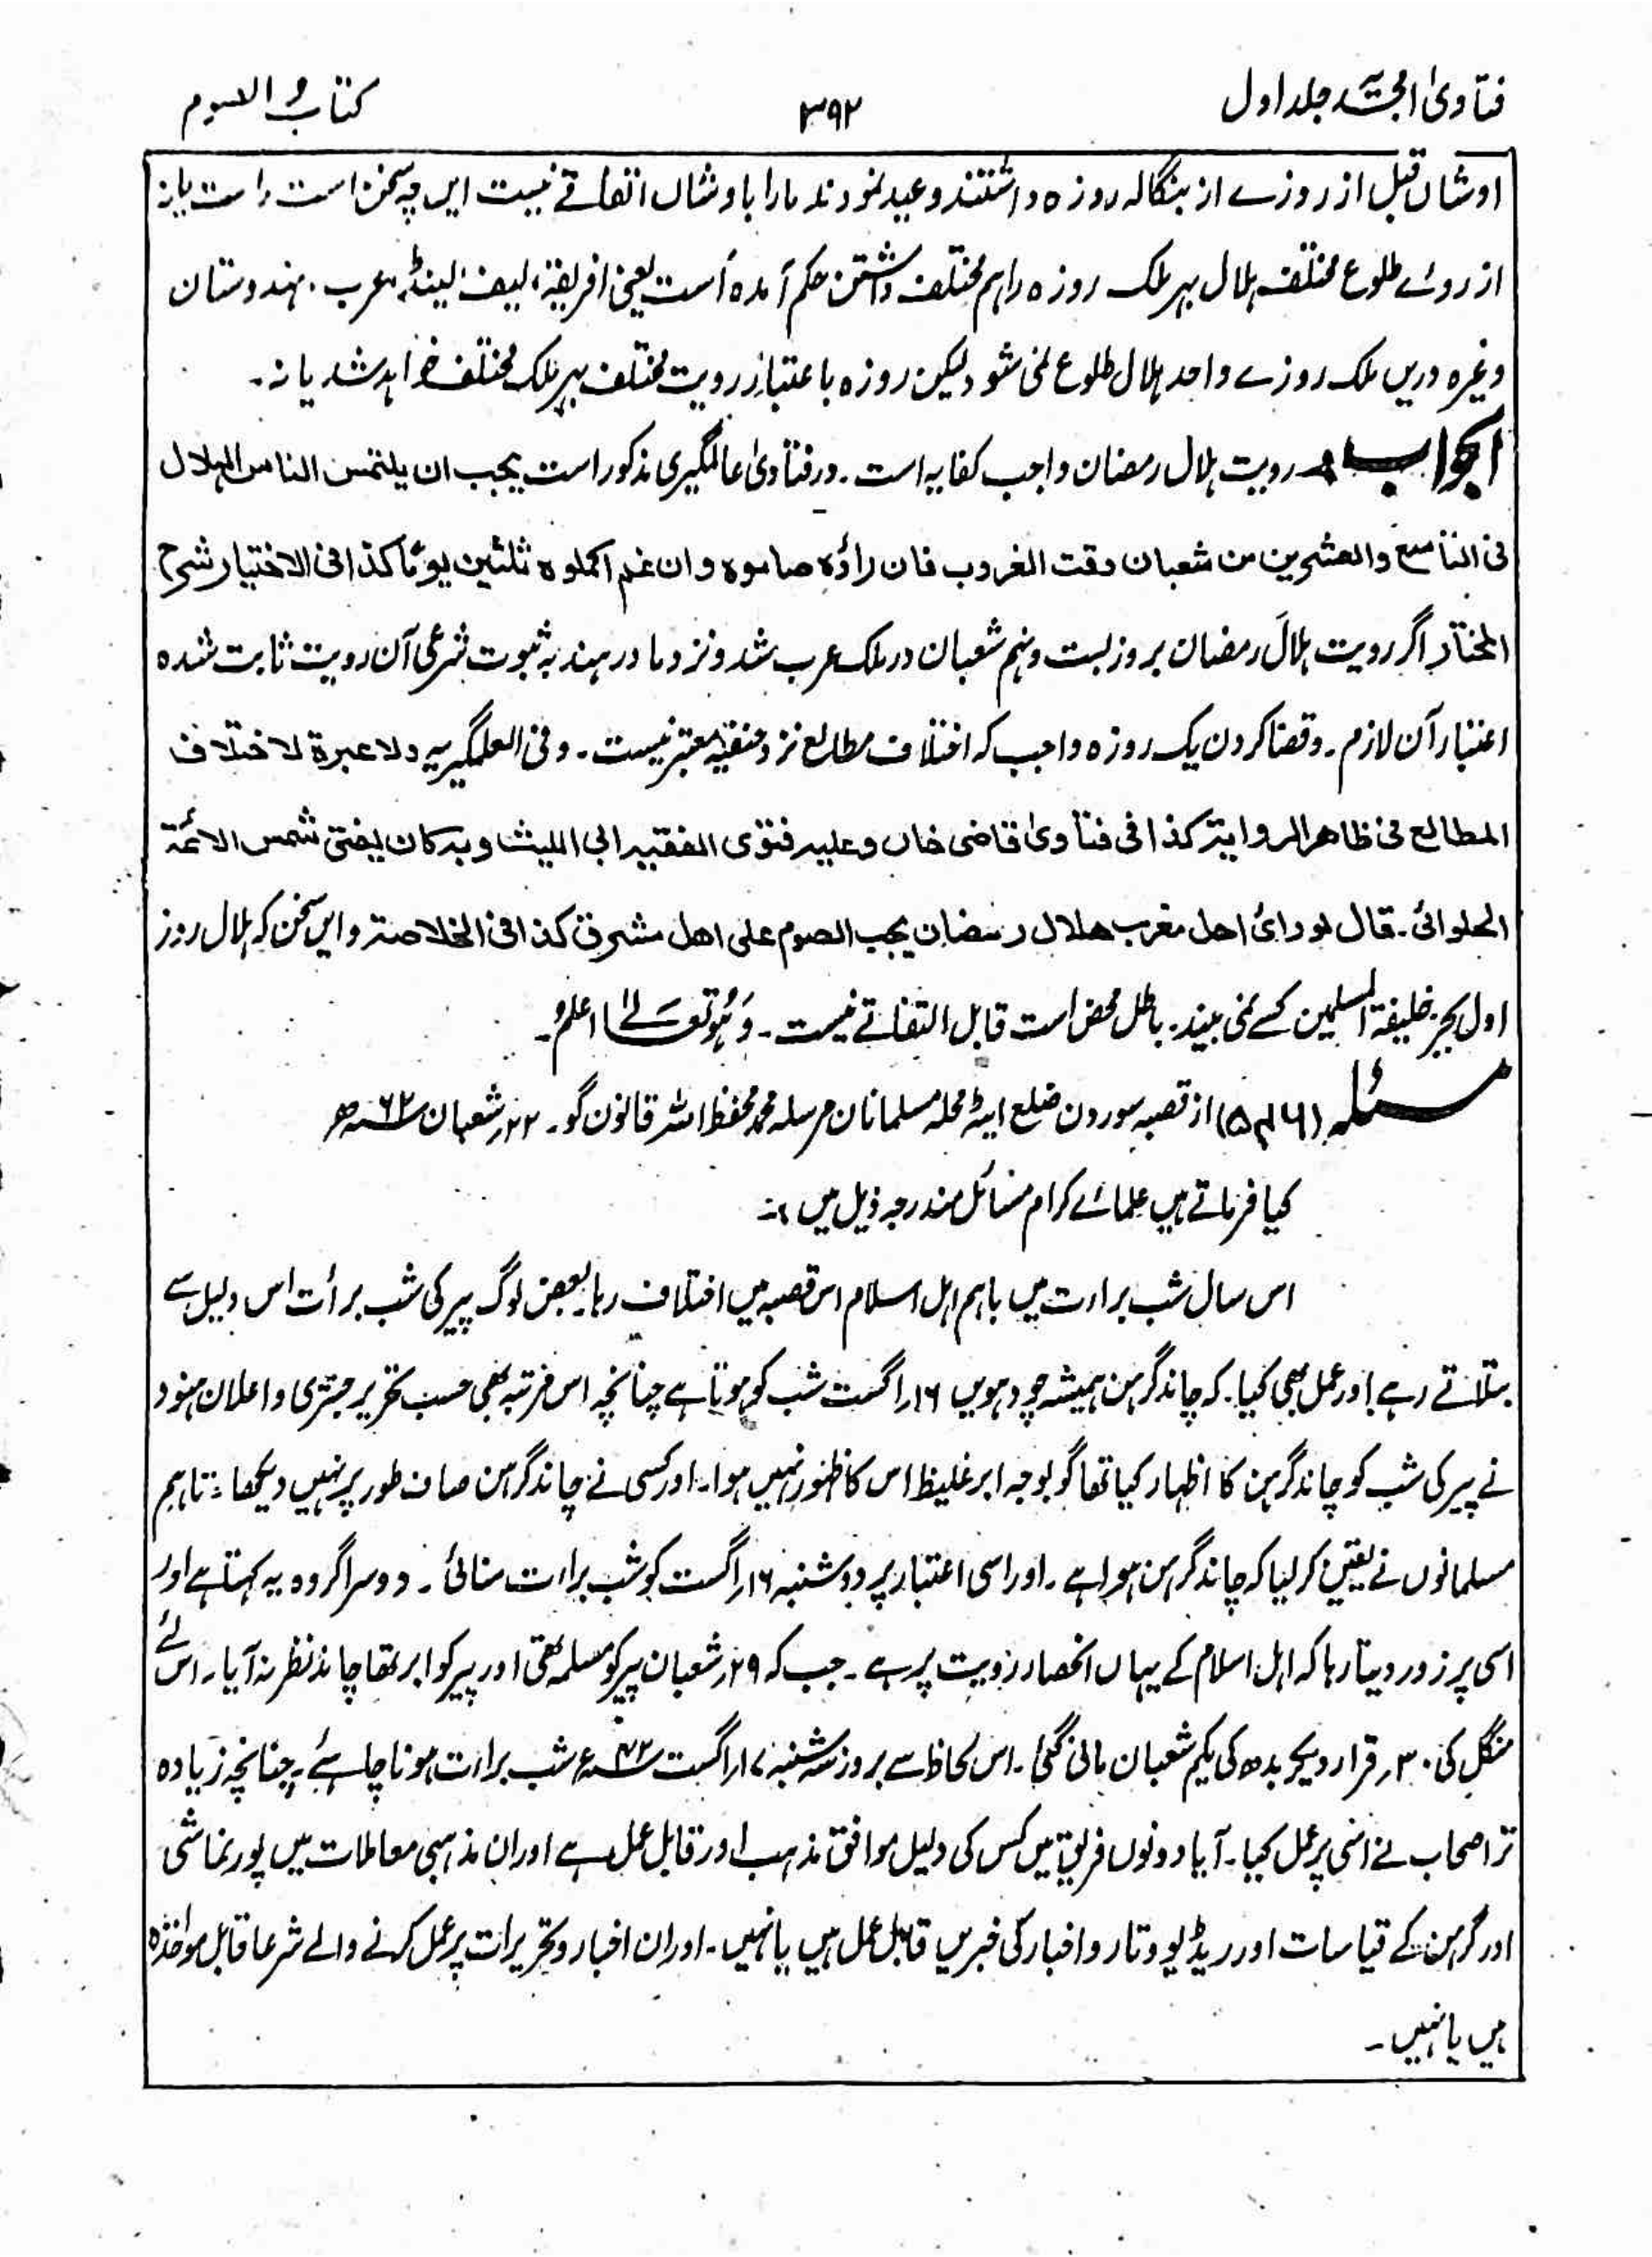 فتاویٰ امجدیہ جلد اول
۳۹۲
کتاب الصوم
اوشاں قبل از روزے از بنگالہ روزہ داشتند و عید نمودند مارا باوشاں اتفاقے نیست ایں چہ سخن است راست یا نہ
از روئے طلوع مختلف ہلال بہر ملک روزہ راہم مختلف داشتن حکم آمدہ است یعنی افریقہ، لیف لینڈ، عرب، ہندوستان
وغیرہ دریں ملک روزے واحد ہلال طلوع نمی شود لیکن روزہ باعتبار رویت مختلف بہر ملک مختلف خواہد شد یا نہ۔
الجواب رویت ہلال رمضان واجب کفایہ است۔ در فتاویٰ عالمگیری مذکور است یجب ان یلتمس الناس الہلال
فی التاسع والعشرین من شعبان وقت الغروب فان راؤہ صاموہ وان غم اکملوہ ثلثین یوماً کذا فی الاختیار شرح
المختار اگر رویت ہلال رمضان بروز بست ونہم شعبان در ملک عرب شد و نزد ما در ہند بہ ثبوت شرعی آن رویت ثابت شدہ
اعتبار آن لازم۔ وقضا کردن یک روزہ واجب کہ اختلاف مطالع نزد حنفیہ معتبر نیست۔ وفی العلمگیریہ ولا عبرۃ لاختلاف
المطالع فی ظاھر الروایۃ کذا فی فتاویٰ قاضی خاں وعلیہ فتوی الفقیہ ابی اللیث وبہ کان یفتی شمس الائمۃ
الحلوائی۔ قال لو رائ اھل مغرب ھلال رمضان یجب الصوم علی اھل مشرق کذا فی الخلاصۃ و ایں سخن کہ ہلال روز
اول بجز خلیفۃ المسلمین کسے نمی بیند۔ باطل محض است قابل التفاتے نیست۔ وَہُوَ تَعَالےٰ اعلمُ۔
مسئلہ (۵۴۶) از قصبہ سورون ضلع ایٹہ محلہ مسلمانان مرسلہ محمد محفظ اللہ قانون گو۔ ۲۲؍ شعبان ۶۲ھ
کیا فرماتے ہیں علمائے کرام مسائل مندرجہ ذیل میں :۔
اس سال شب براءت میں باہم اہل اسلام اس قصبہ میں اختلاف رہا۔ بعض لوگ پیر کی شب برأت اس دلیل سے
بتلاتے رہے اور عمل بھی کیا۔ کہ چاند گرہن ہمیشہ چودہویں ۱۶؍ اگست شب کو ہوتا ہے چنانچہ اس مرتبہ بھی حسب تحریر جنتری و اعلان ہنود
نے پیر کی شب کو چاند گرہن کا اظہار کیا تھا گو بوجہ ابر غلیظ اس کا ظہور نہیں ہوا۔ اور کسی نے چاند گرہن صاف طور پر نہیں دیکھا، تاہم
مسلمانوں نے یقین کر لیا کہ چاند گرہن ہوا ہے۔ اور اسی اعتبار پر دوشنبہ ۱۶؍ اگست کو شب براءت منائی۔ دوسرا گروہ یہ کہتا ہے اور
اسی پر زور دیتا رہا کہ اہل اسلام کے یہاں انحصار رویت پر ہے۔ جب کہ ۲۹؍ شعبان پیر کو مسلمہ تھی اور پیر کو ابر تھا چاند نظر نہ آیا۔ اس لئے
منگل کی ۳۰؍ قرار دیکر بدھ کی یکم شعبان مانی گئی۔ اس لحاظ سے بروز سہ شنبہ ۱۷؍ اگست ۴۳ء شب براءت ہونا چاہئے، چنانچہ زیادہ
تر اصحاب نے اسی پر عمل کیا۔ آیا دونوں فریق میں کس کی دلیل موافق مذہب اور قابل عمل ہے اور ان مذہبی معاملات میں پورنماشی
اور گرہن کے قیاسات اور ریڈیو و تار و اخبار کی خبریں قابل عمل ہیں یا نہیں۔ اور ان اخبار و تحریرات پر عمل کرنے والے شرعا قابل مواخذہ
ہیں یا نہیں۔